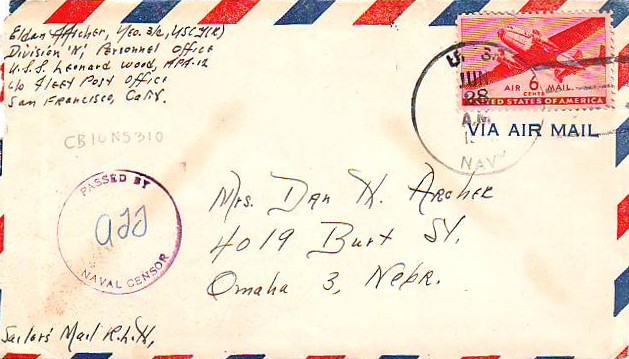 Eldan Archer, Yeo. 3/c, USCG(R)
Division 'N', Personnel Office
U.S.S. Leonard Wood, APA-12
c/o Fleet Post Office
San Francisco, Calif.
CB10NS310
U. S.
JUN
28
A.M.
NAVY
AIR 6 MAIL
CENTS
UNITED STATES OF AMERICA
VIA AIR MAIL
PASSED BY
NAVAL CENSOR
Mrs. Dan H. Archer
4019 Burt St.
Omaha 3, Nebr.
Sailors' Mail